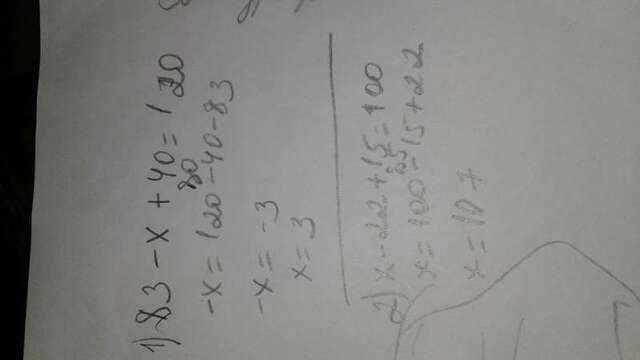 1) 83 - x + 40 = 120
80
-x = 120 - 40 - 83
-x = -3
x = 3
2) x - 22 + 15 = 100
85
x = 100 - 15 + 22
x = 107